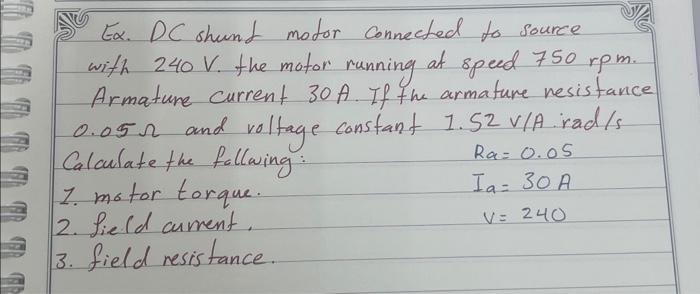 Ex. DC shunt motor connected to source
with 240 V. the motor running at speed 750 rpm.
Armature current 30 A. If the armature resistance
0.05 Ω and voltage constant 1.52 V/A. rad/s
Calculate the following:
Ra = 0.05
1. motor torque.
Ia = 30 A
2. field current.
V = 240
3. field resistance.